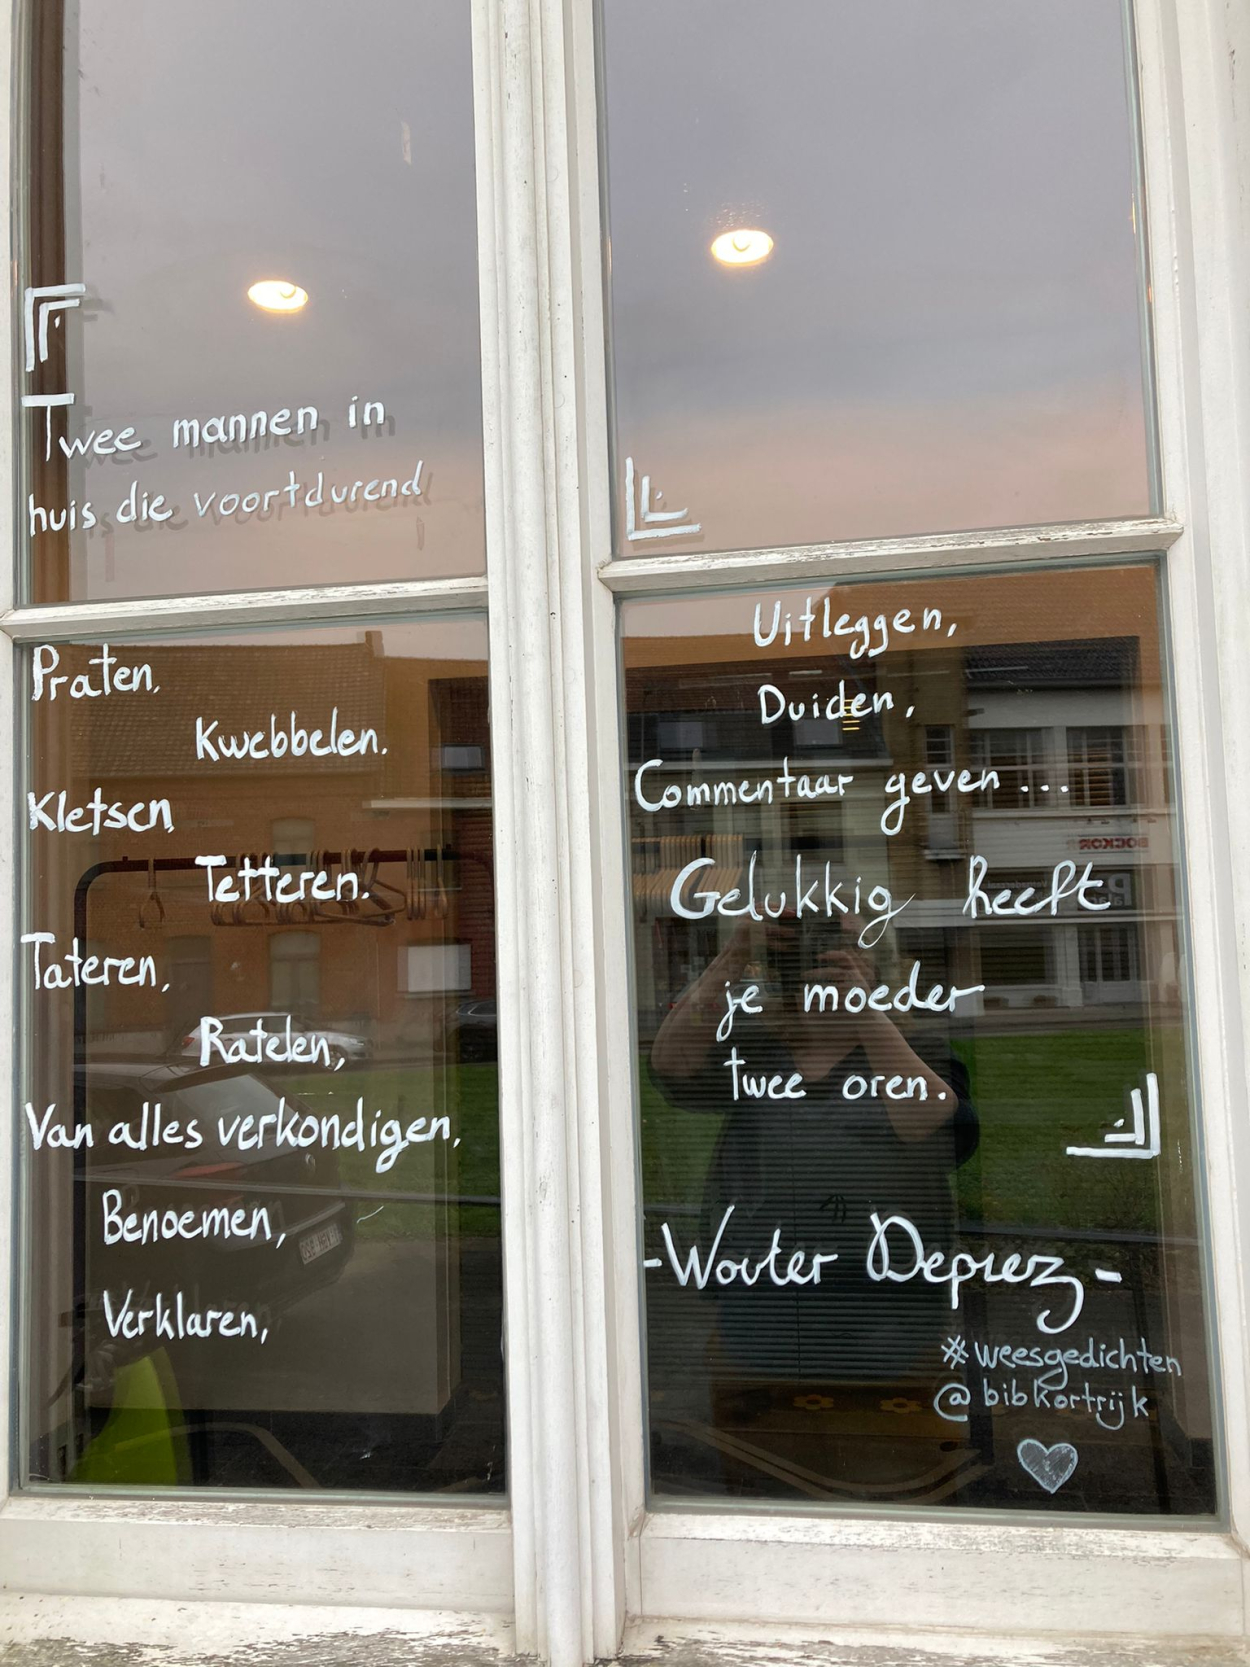 Twee mannen in
huis die voortdurend
Praten,
Kwebbelen.
Kletsen,
Tetteren.
Tateren,
Ratelen,
Van alles verkondigen,
Benoemen,
Verklaren,
Uitleggen,
Duiden,
Commentaar geven...
Gelukkig heeft
je moeder
twee oren.
-Wouter Deprez-
#weesgedichten
@bibkortrijk
BOCKOR